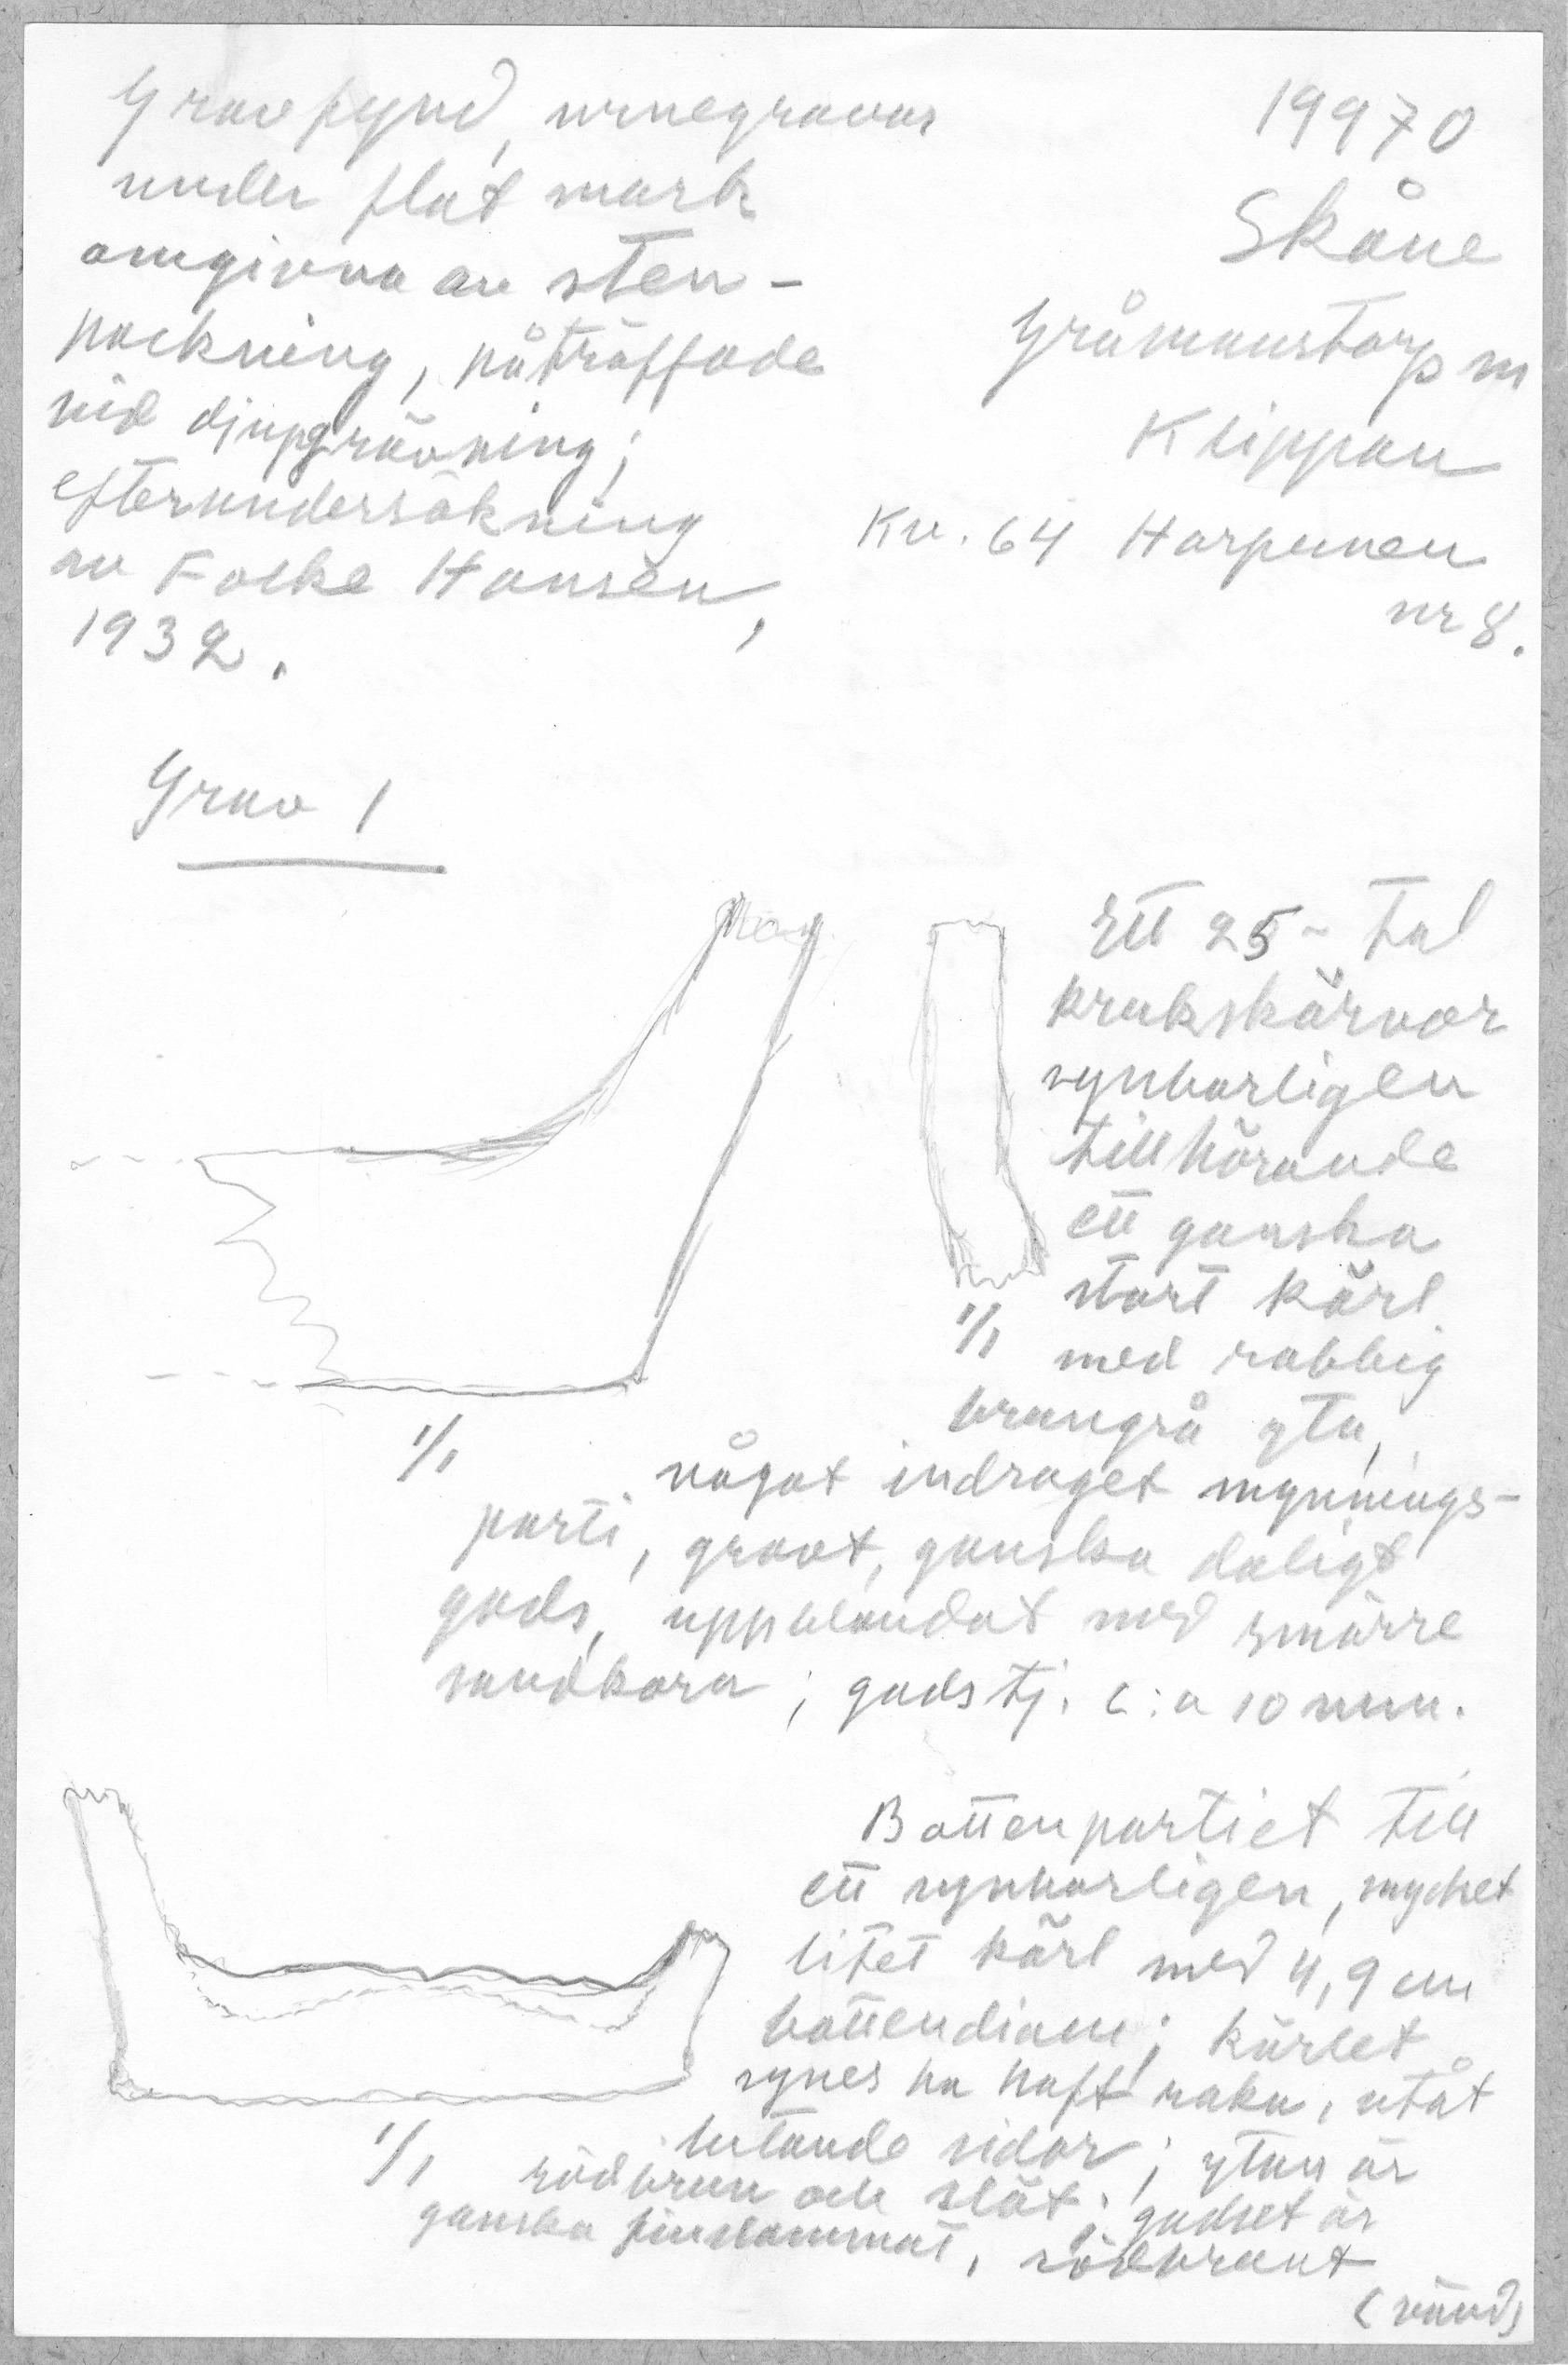 Gravfynd, urnegravar
under flat mark
omgivna av sten-
packning, påträffade
vid djupgrävning;
efterundersökning
av Folke Hansen,
1932.
19970
Skåne
Gråmanstorp sn
Klippan
Kv. 64 Harpunen
nr 8.
Grav 1
Ett 25-tal
krukskärvor
synbarligen
tillhörande
ett ganska
stort kärl
1/1
med rabbig
brungrå yta,
1/1
något indraget mynnings-
parti, grovt, ganska dåligt
gods, uppblandat med smärre
sandkorn; godstj. c:a 10 mm.
Bottenpartiet till
ett synbarligen, mycket
litet kärl med 4,9 cm
bottendiam; kärlet
synes ha haft raka, utåt
lutande sidor; ytan är
1/1
rödbrun och slät; godset är
ganska finslammat, rödbrunt
(vänd)